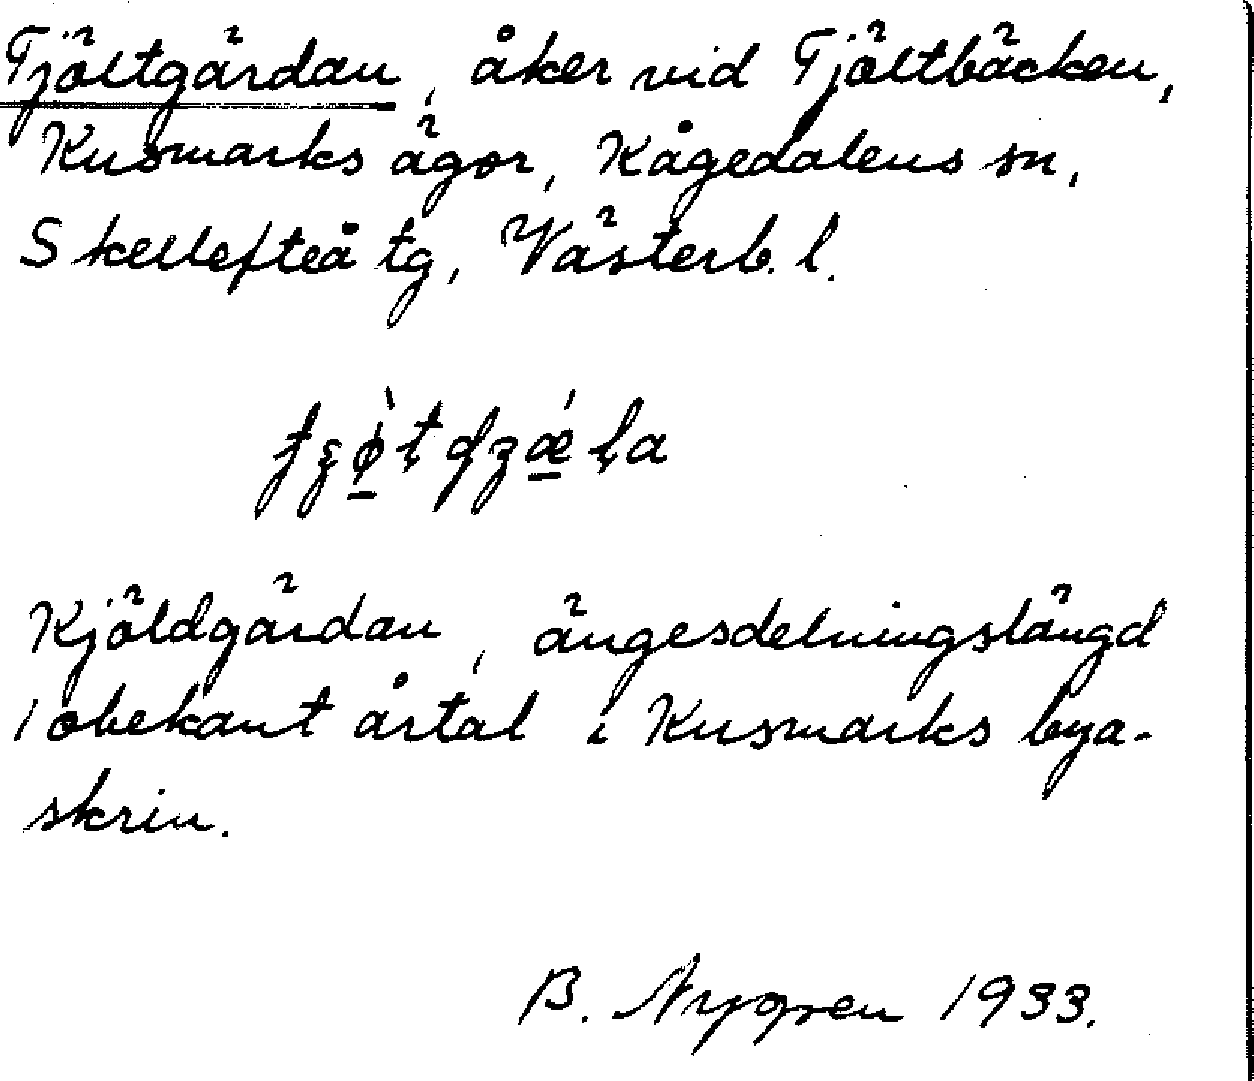 Tjöltgärdan, åker vid Tjöltbäcken,
Kusmarks ägor, Kågedalens sn,
Skellefteå tg, Västerb. l.
Kjöldgärdan, ängesdelningslängd
i obekant årtal i Kusmarks bya-
skrin.
B. Nygren 1933.